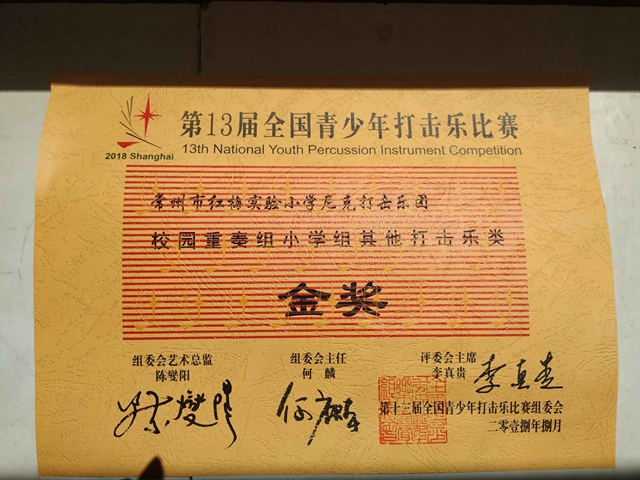 第13届全国青少年打击乐比赛
2018 Shanghai
13th National Youth Percussion Instrument Competition
常州市红梅实验小学尼克打击乐团
校园重奏组小学组其他打击乐类
金奖
组委会艺术总监
陈燮阳
组委会主任
何麟
评委会主席
李真贵
陈燮阳
何麟
李真贵
第十三届全国青少年打击乐比赛组委会
二零壹捌年捌月